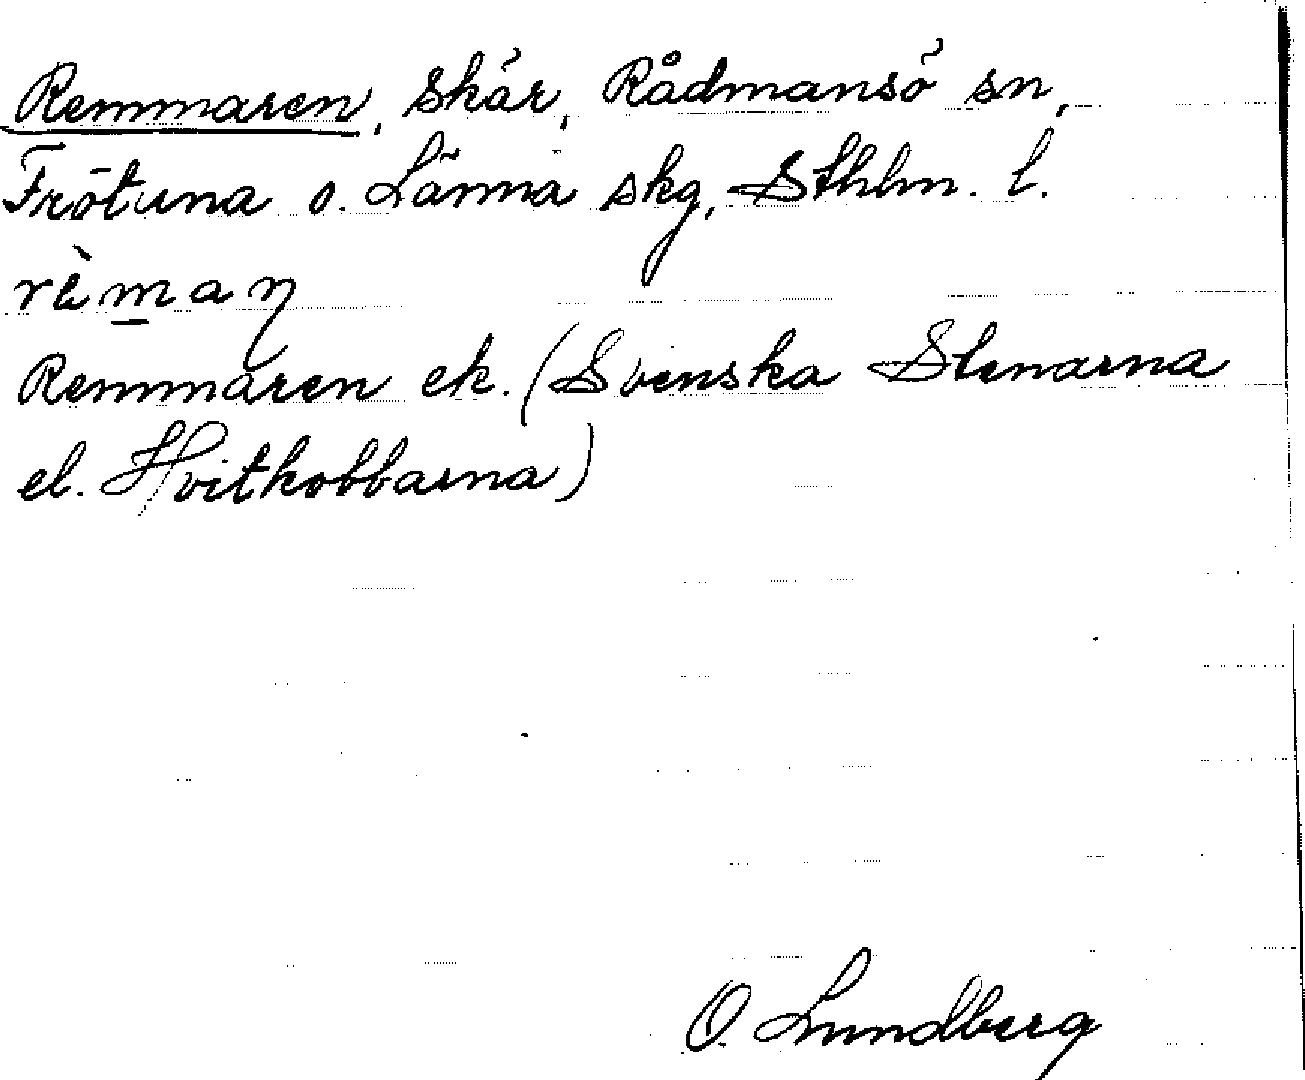 Remmaren, skär, Rådmansö sn,
Frötuna o. Länna skg, Sthlm. l.
rèmaṇ
Remmaren ek. (Svenska Stenarna
el. Hvitkobbarna)
O. Lundberg